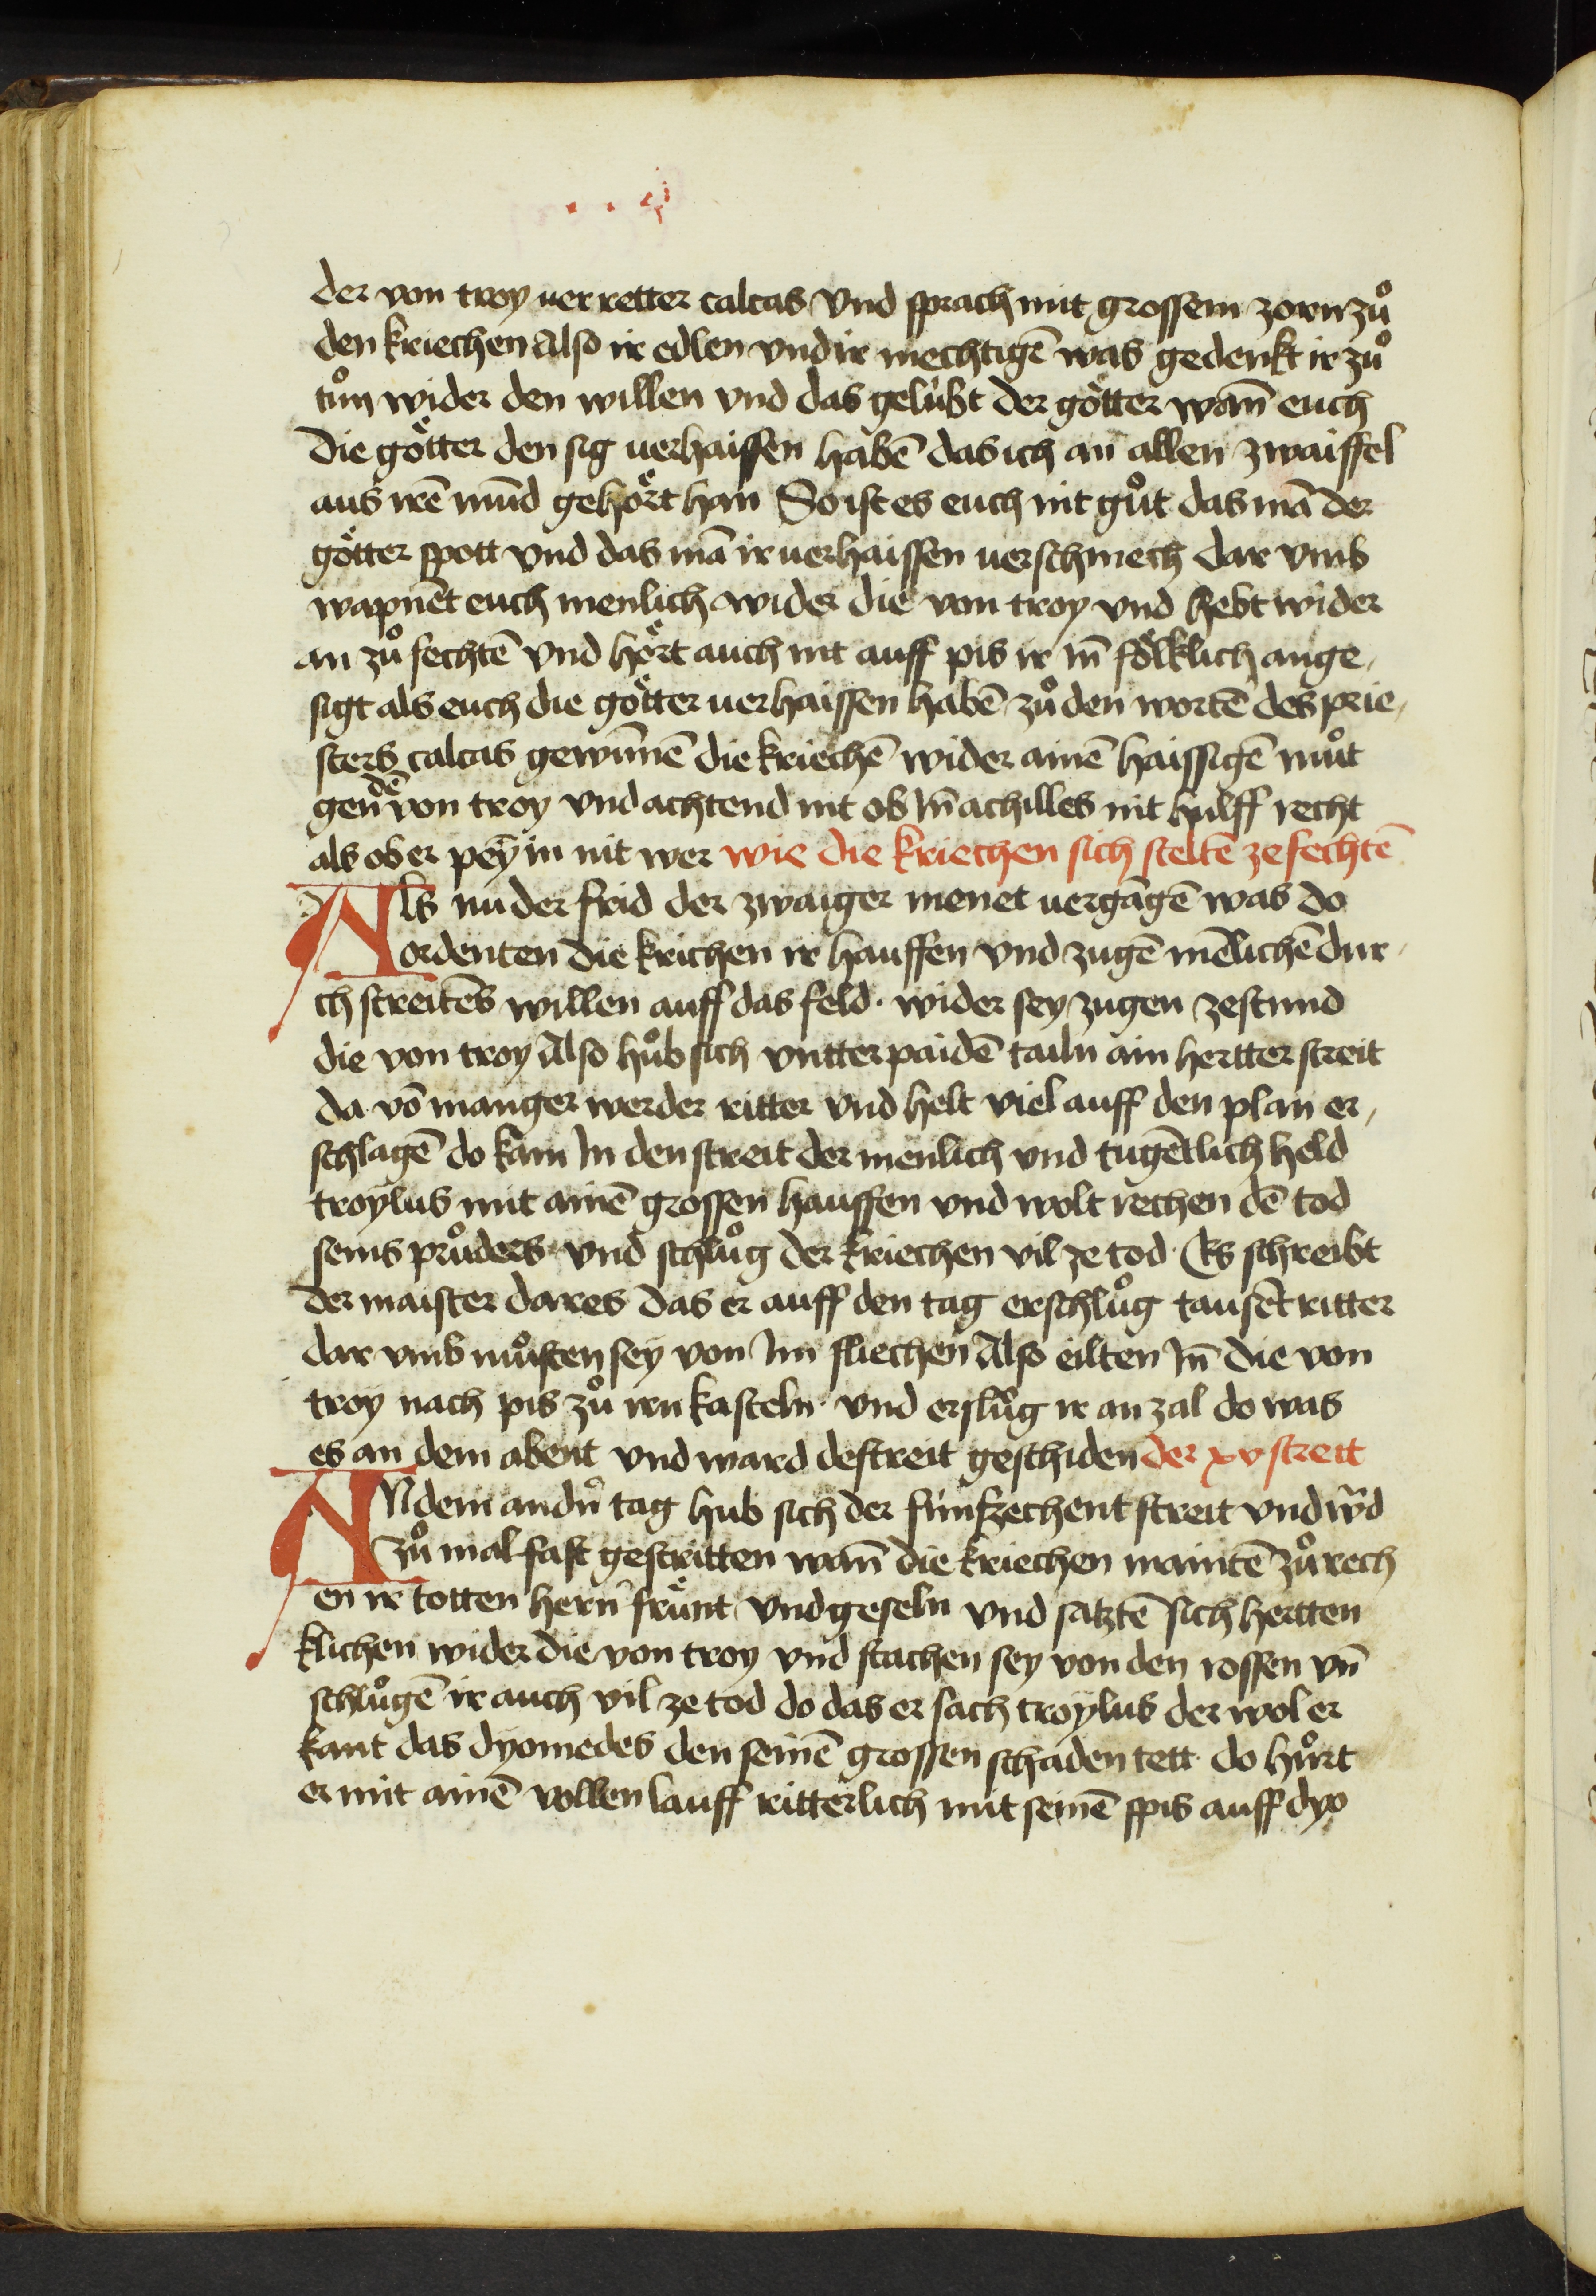 der von troy uerretter calcas Vnd sprach mit grossem zorn zů
den kriechen Also ir edlen vnd ir mechtigē was gedenkt ir zů
tůn wider den willen vnd das gelübt der götter wañ euch
die götter den sig uerhaissen habē das ich an allen zwaiffel
aus irē mūd gehört han So ist es euch nit gůt das mā der
götter spott vnd das mā ir uerhaissen uerschmech dar vmb
wapnēt euch menlich wider die von troy vnd hebt wider
an zů fechtē vnd hört auch nit auff pis ir iñ fölklich ange,
sigt als euch die götter uerhaissen habē zů den wortē des prie,
sters calcas gewūnē die kriechē wider ainē haissigē můt
gen dē von troy vnd achtend nit ob iñ achilles nit hulff recht
als ob er pey in nit wer wie die kriechen sich steltē ze fechtē
Als nu der frid der zwaiger menet uergāgē was do
ordenten die krichen ir hauffen vnd zugē mēlichē dur
ch streites willen auff das feld · wider sey zugen zestund
die von troy Also hůb sich vntter paidē tailn ain hertter streit
da vō manger werder ritter vnd helt viel auff den plan er,
schlagē do kam in den streit der menlich vnd tugētlich held
troylus mit ainē grossen hauffen vnd wolt rechen dē tod
seins průders vnd schlůg der kriechen vil ze tod · Es schreibt
der maister dares das er auff den tag erschlůg tausēt ritter
dar vmb můsten sey von im fliechen Also eilten iñ die von
troy nach pis zů irn kasteln · vnd erslůg ir an zal do was
es an dem abent vnd ward der streit geschiden der xv streit
An dem andn̄ tag hub sich der fünfzechent streit vnd w̄d
zů mal fast gestritten wañ die kriechen maintē zů rech
en ir totten hern̄ fründt vnd geseln vnd satztē sich hertten
klichen wider die von troy vnd stachen sey von den rossen vn̄
schlůgē ir auch vil ze tod do das er sach troylus der wol er
kant das dyomedes den seinē grossen schaden tett · do hůrt
er mit ainē vollen lauff ritterlich mit seinē spis auff dyo